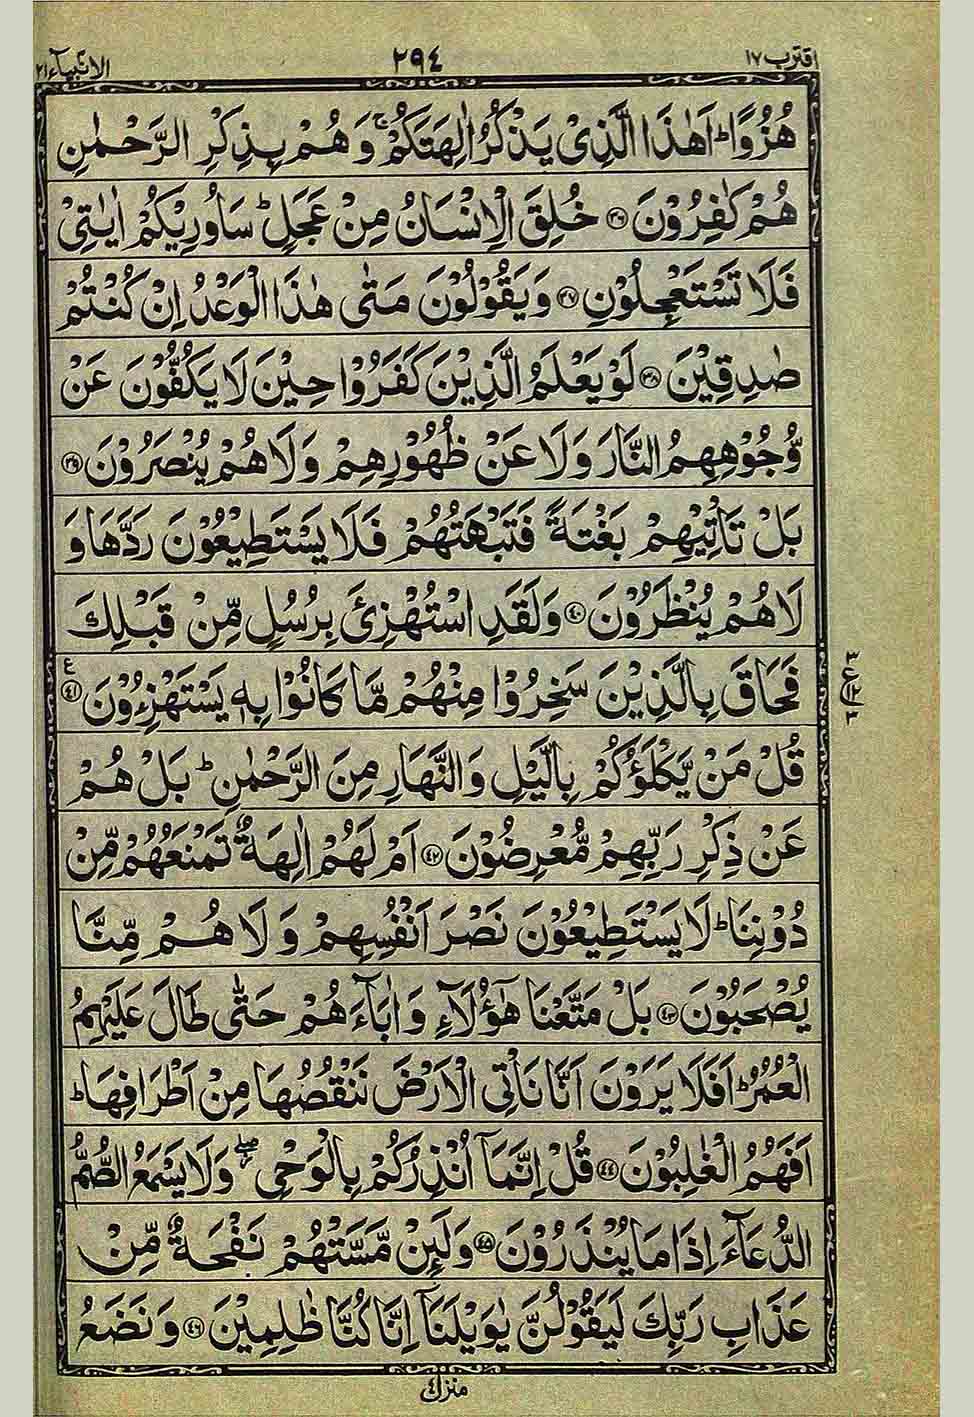 اقترب ١٧ ٢٩٤ الانبيآء ٢١
هُزُوًا ؕ اَهٰذَا الَّذِیْ یَذْكُرُ اٰلِهَتَكُمْ ۚ وَ هُمْ بِذِكْرِ الرَّحْمٰنِ
هُمْ كٰفِرُوْنَ ﴿۳۶﴾ خُلِقَ الْاِنْسَانُ مِنْ عَجَلٍ ؕ سَاُورِیْكُمْ اٰیٰتِیْ
فَلَا تَسْتَعْجِلُوْنِ ﴿۳۷﴾ وَ یَقُوْلُوْنَ مَتٰی هٰذَا الْوَعْدُ اِنْ كُنْتُمْ
صٰدِقِیْنَ ﴿۳۸﴾ لَوْ یَعْلَمُ الَّذِیْنَ كَفَرُوْا حِیْنَ لَا یَكُفُّوْنَ عَنْ
وُّجُوْهِهِمُ النَّارَ وَ لَا عَنْ ظُهُوْرِهِمْ وَ لَا هُمْ یُنْصَرُوْنَ ﴿۳۹﴾
بَلْ تَاْتِیْهِمْ بَغْتَةً فَتَبْهَتُهُمْ فَلَا یَسْتَطِیْعُوْنَ رَدَّهَا وَ
لَا هُمْ یُنْظَرُوْنَ ﴿۴۰﴾ وَ لَقَدِ اسْتُهْزِئَ بِرُسُلٍ مِّنْ قَبْلِكَ
فَحَاقَ بِالَّذِیْنَ سَخِرُوْا مِنْهُمْ مَّا كَانُوْا بِهٖ یَسْتَهْزِءُوْنَ ﴿۴۱﴾ ع
٣ ع ١٢ ٣
قُلْ مَنْ یَّكْلَؤُكُمْ بِالَّیْلِ وَ النَّهَارِ مِنَ الرَّحْمٰنِ ؕ بَلْ هُمْ
عَنْ ذِكْرِ رَبِّهِمْ مُّعْرِضُوْنَ ﴿۴۲﴾ اَمْ لَهُمْ اٰلِهَةٌ تَمْنَعُهُمْ مِّنْ
دُوْنِنَا ؕ لَا یَسْتَطِیْعُوْنَ نَصْرَ اَنْفُسِهِمْ وَ لَا هُمْ مِّنَّا
یُصْحَبُوْنَ ﴿۴۳﴾ بَلْ مَتَّعْنَا هٰۤؤُلَآءِ وَ اٰبَآءَهُمْ حَتّٰی طَالَ عَلَیْهِمُ
الْعُمُرُ ؕ اَفَلَا یَرَوْنَ اَنَّا نَاْتِی الْاَرْضَ نَنْقُصُهَا مِنْ اَطْرَافِهَا ؕ
اَفَهُمُ الْغٰلِبُوْنَ ﴿۴۴﴾ قُلْ اِنَّمَاۤ اُنْذِرُكُمْ بِالْوَحْیِ ۖ وَ لَا یَسْمَعُ الصُّمُّ
الدُّعَآءَ اِذَا مَا یُنْذَرُوْنَ ﴿۴۵﴾ وَ لَىِٕنْ مَّسَّتْهُمْ نَفْحَةٌ مِّنْ
عَذَابِ رَبِّكَ لَیَقُوْلُنَّ یٰوَیْلَنَاۤ اِنَّا كُنَّا ظٰلِمِیْنَ ﴿۴۶﴾ وَ نَضَعُ
منزل ٤